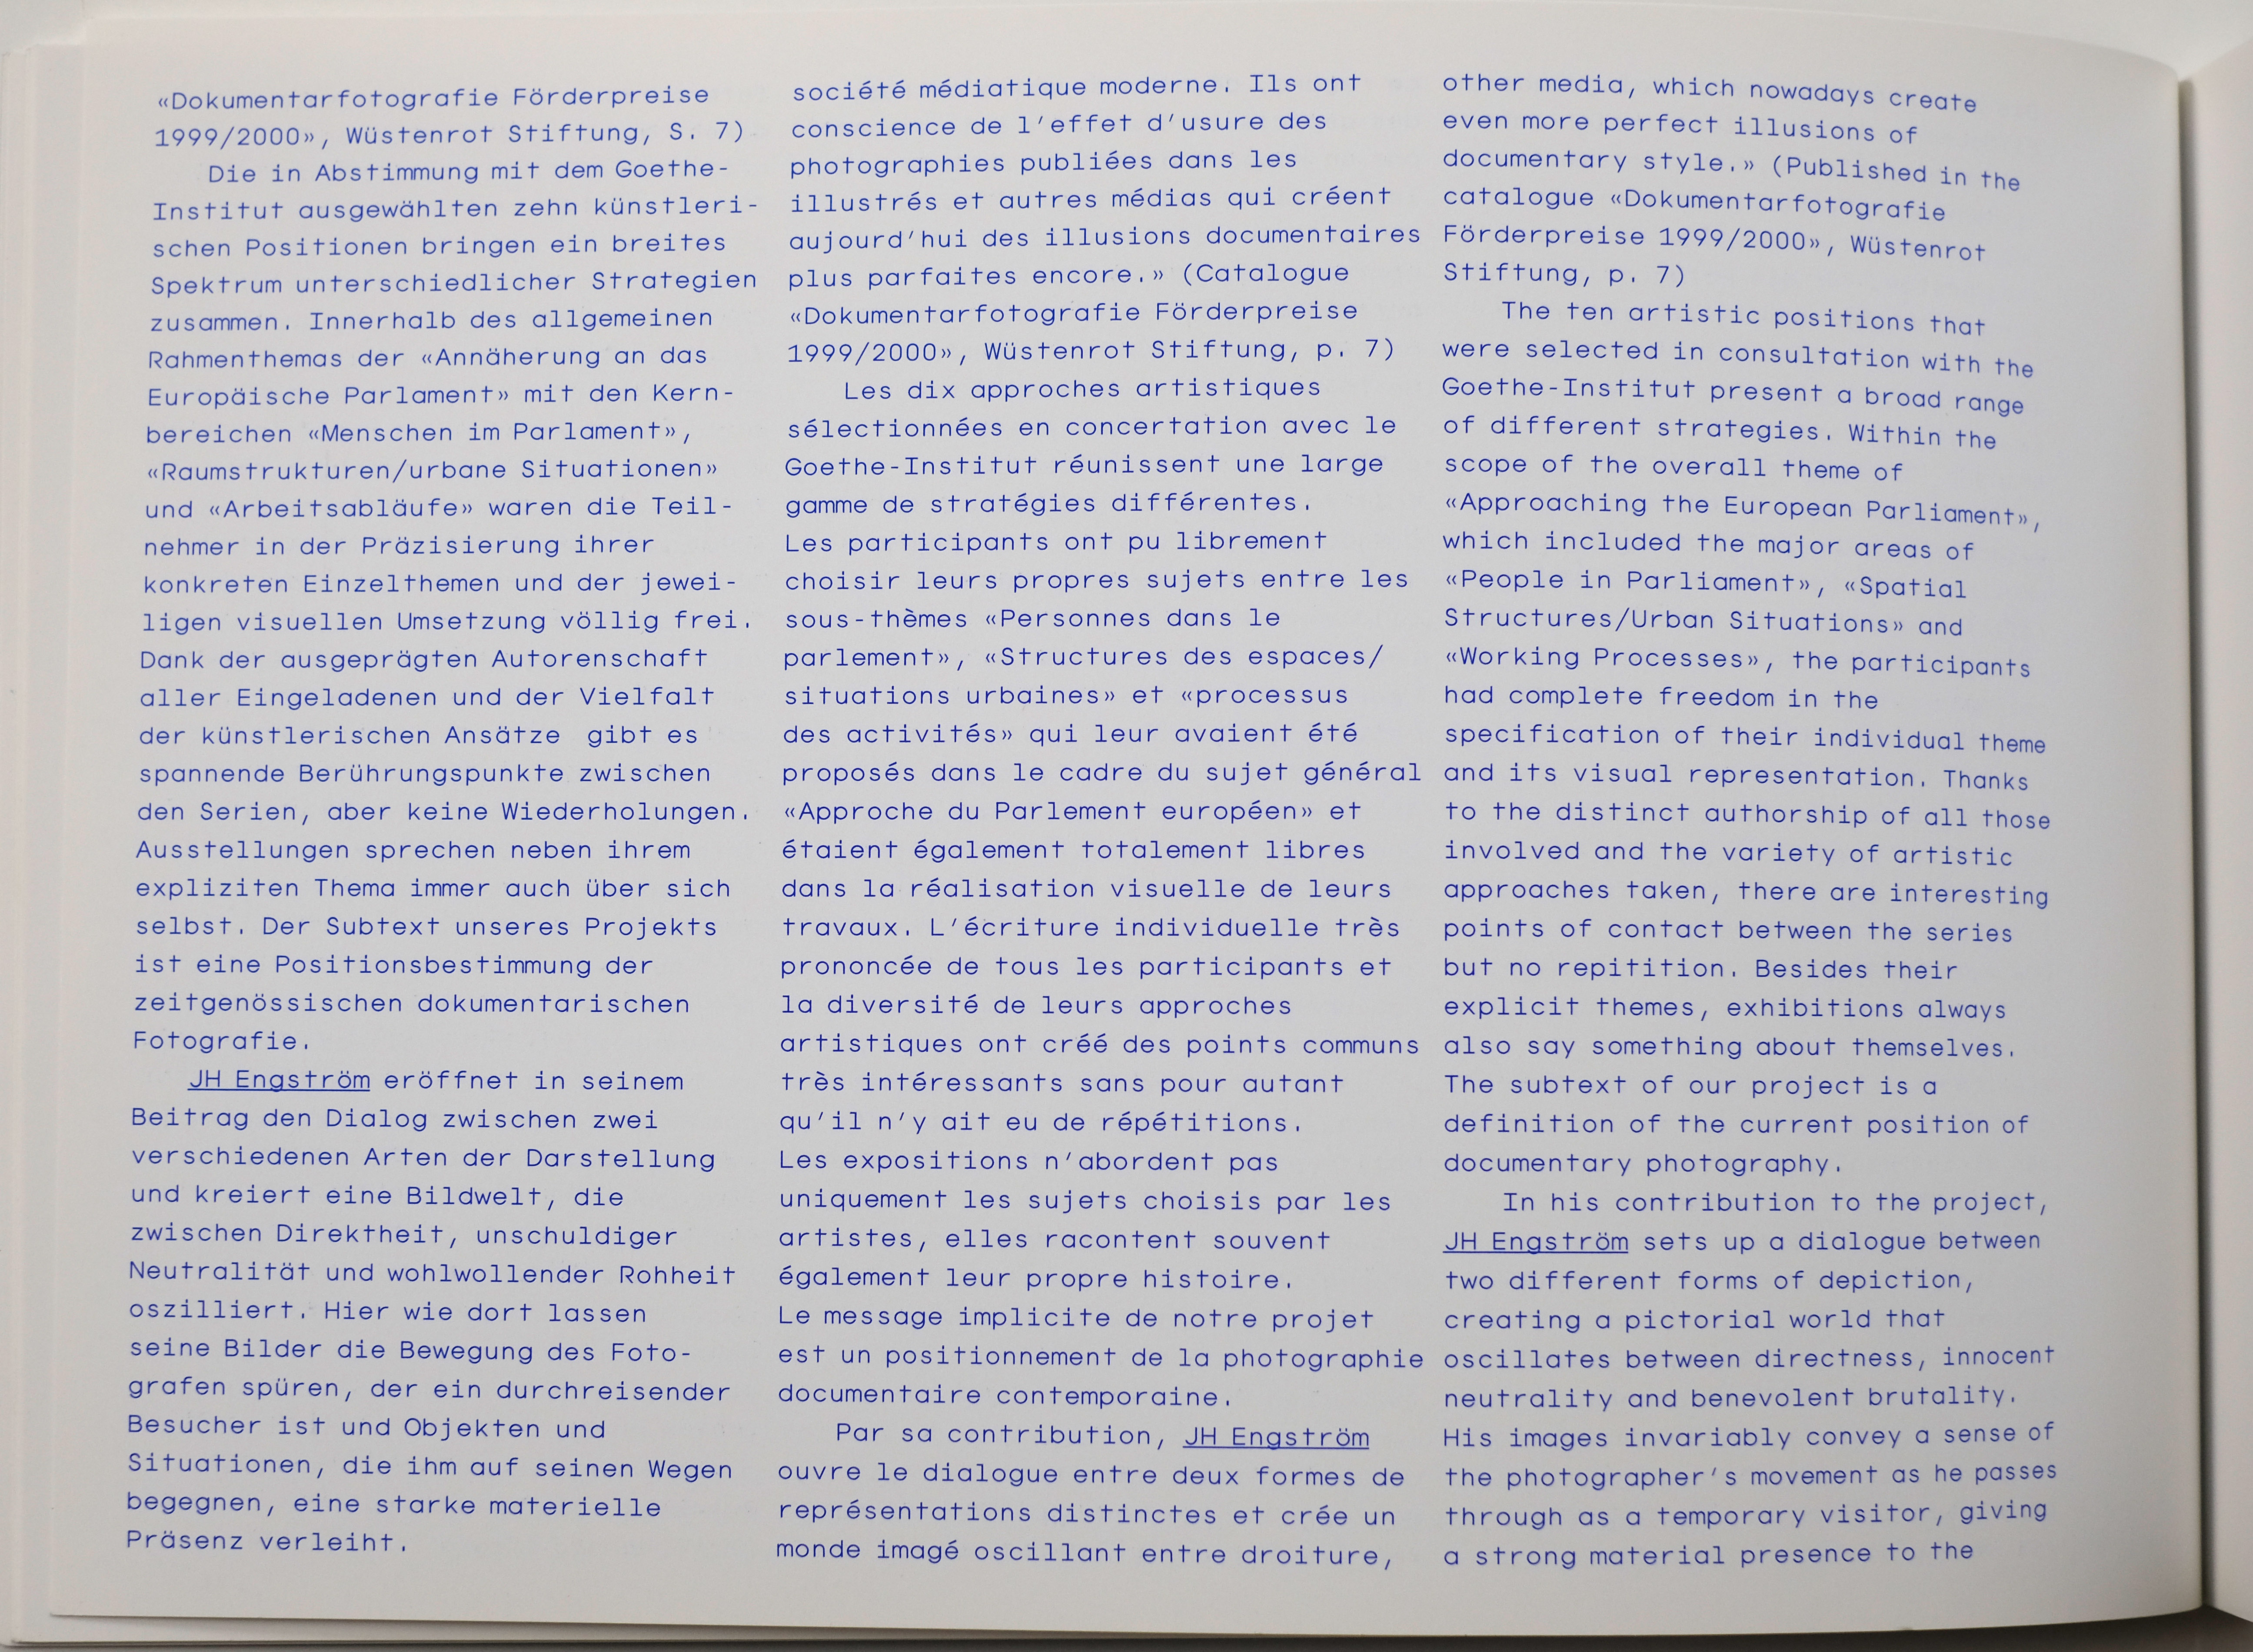 «Dokumentarfotografie Förderpreise
1999/2000», Wüstenrot Stiftung, S. 7)
Die in Abstimmung mit dem Goethe-
Institut ausgewählten zehn künstleri-
schen Positionen bringen ein breites
Spektrum unterschiedlicher Strategien
zusammen. Innerhalb des allgemeinen
Rahmenthemas der «Annäherung an das
Europäische Parlament» mit den Kern-
bereichen «Menschen im Parlament»,
«Raumstrukturen/urbane Situationen»
und «Arbeitsabläufe» waren die Teil-
nehmer in der Präzisierung ihrer
konkreten Einzelthemen und der jewei-
ligen visuellen Umsetzung völlig frei.
Dank der ausgeprägten Autorenschaft
aller Eingeladenen und der Vielfalt
der künstlerischen Ansätze gibt es
spannende Berührungspunkte zwischen
den Serien, aber keine Wiederholungen.
Ausstellungen sprechen neben ihrem
expliziten Thema immer auch über sich
selbst. Der Subtext unseres Projekts
ist eine Positionsbestimmung der
zeitgenössischen dokumentarischen
Fotografie.
JH Engström eröffnet in seinem
Beitrag den Dialog zwischen zwei
verschiedenen Arten der Darstellung
und kreiert eine Bildwelt, die
zwischen Direktheit, unschuldiger
Neutralität und wohlwollender Rohheit
oszilliert. Hier wie dort lassen
seine Bilder die Bewegung des Foto-
grafen spüren, der ein durchreisender
Besucher ist und Objekten und
Situationen, die ihm auf seinen Wegen
begegnen, eine starke materielle
Präsenz verleiht.
société médiatique moderne. Ils ont
conscience de l'effet d'usure des
photographies publiées dans les
illustrés et autres médias qui créent
aujourd'hui des illusions documentaires
plus parfaites encore.» (Catalogue
«Dokumentarfotografie Förderpreise
1999/2000», Wüstenrot Stiftung, p. 7)
Les dix approches artistiques
sélectionnées en concertation avec le
Goethe-Institut réunissent une large
gamme de stratégies différentes.
Les participants ont pu librement
choisir leurs propres sujets entre les
sous-thèmes «Personnes dans le
parlement», «Structures des espaces/
situations urbaines» et «processus
des activités» qui leur avaient été
proposés dans le cadre du sujet général
«Approche du Parlement européen» et
étaient également totalement libres
dans la réalisation visuelle de leurs
travaux. L'écriture individuelle très
prononcée de tous les participants et
la diversité de leurs approches
artistiques ont créé des points communs
très intéressants sans pour autant
qu'il n'y ait eu de répétitions.
Les expositions n'abordent pas
uniquement les sujets choisis par les
artistes, elles racontent souvent
également leur propre histoire.
Le message implicite de notre projet
est un positionnement de la photographie
documentaire contemporaine.
Par sa contribution, JH Engström
ouvre le dialogue entre deux formes de
représentations distinctes et crée un
monde imagé oscillant entre droiture,
other media, which nowadays create
even more perfect illusions of
documentary style.» (Published in the
catalogue «Dokumentarfotografie
Förderpreise 1999/2000», Wüstenrot
Stiftung, p. 7)
The ten artistic positions that
were selected in consultation with the
Goethe-Institut present a broad range
of different strategies. Within the
scope of the overall theme of
«Approaching the European Parliament»,
which included the major areas of
«People in Parliament», «Spatial
Structures/Urban Situations» and
«Working Processes», the participants
had complete freedom in the
specification of their individual theme
and its visual representation. Thanks
to the distinct authorship of all those
involved and the variety of artistic
approaches taken, there are interesting
points of contact between the series
but no repitition. Besides their
explicit themes, exhibitions always
also say something about themselves.
The subtext of our project is a
definition of the current position of
documentary photography.
In his contribution to the project,
JH Engström sets up a dialogue between
two different forms of depiction,
creating a pictorial world that
oscillates between directness, innocent
neutrality and benevolent brutality.
His images invariably convey a sense of
the photographer's movement as he passes
through as a temporary visitor, giving
a strong material presence to the